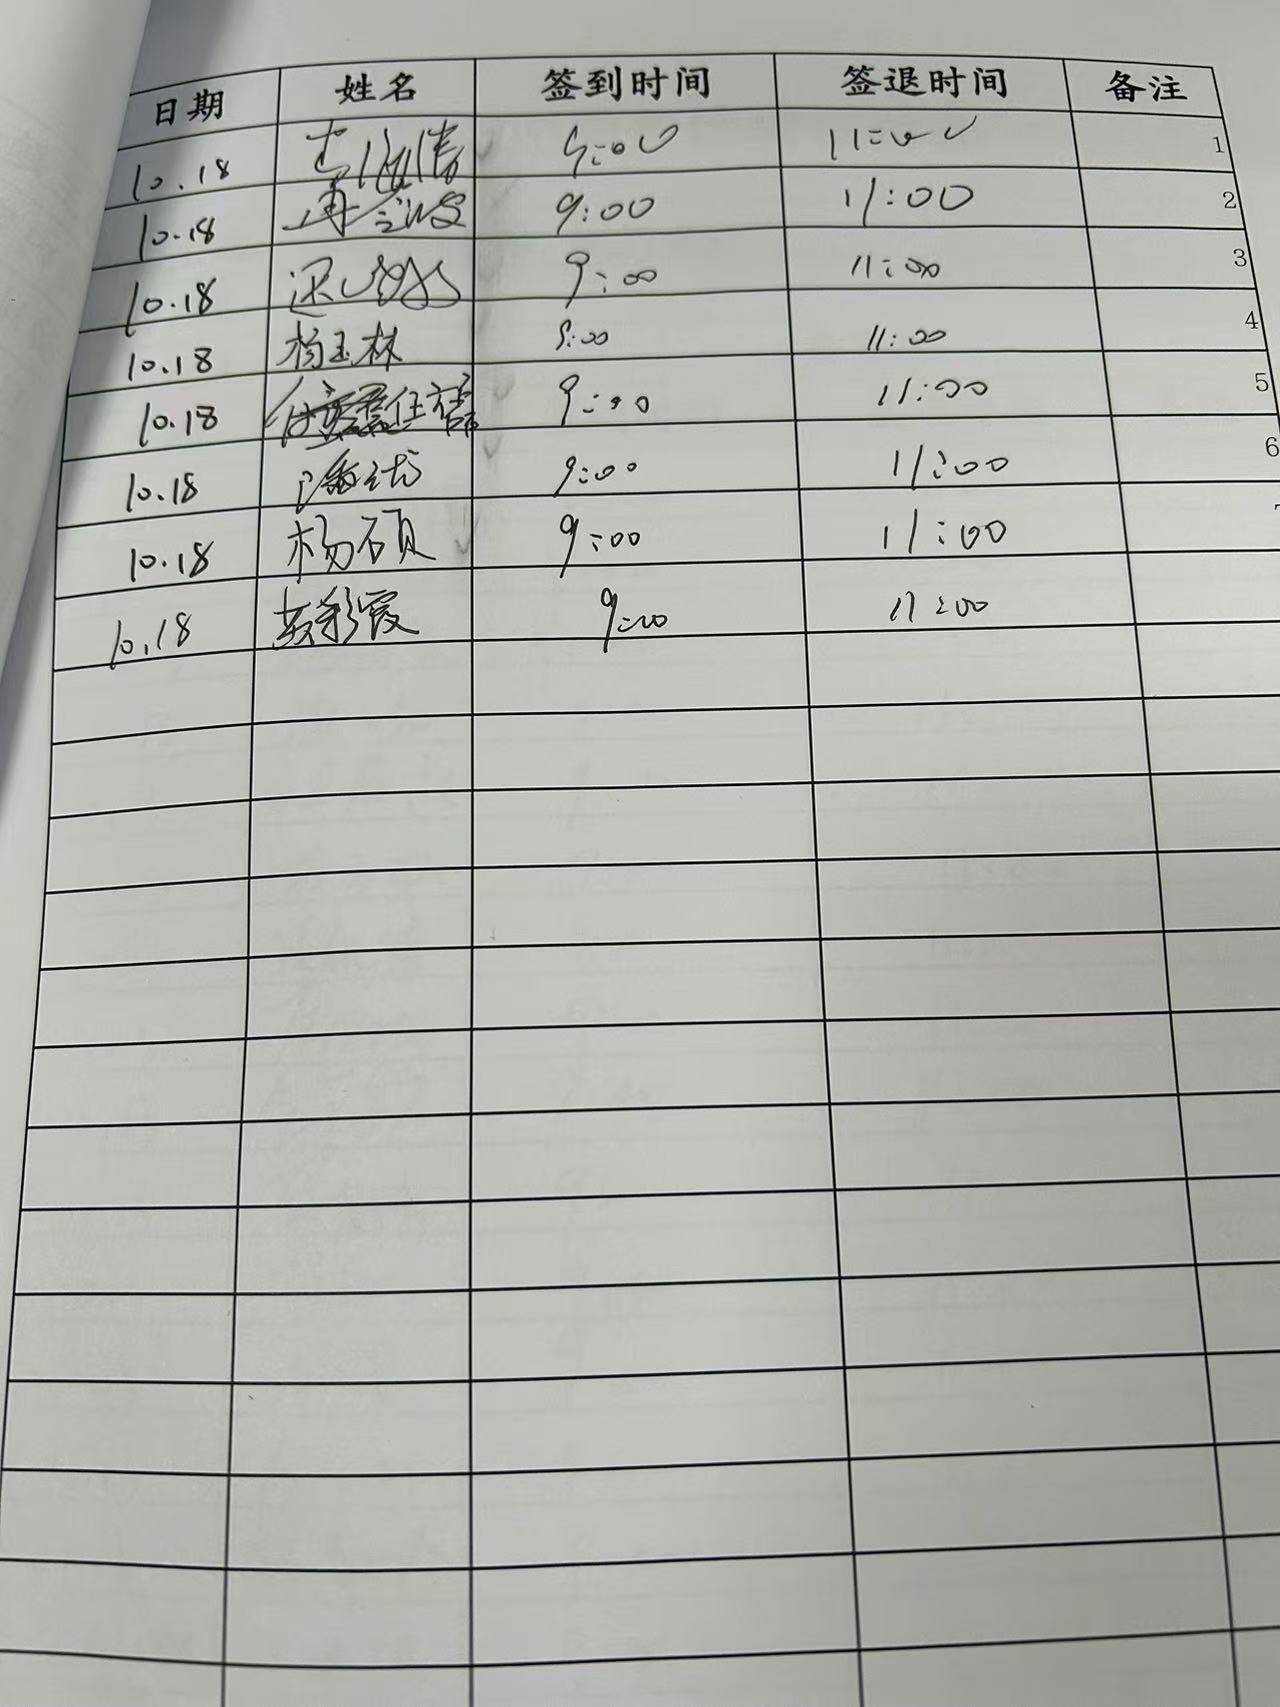 日期 姓名 签到时间 签退时间 备注
10.18 9:00 11:00 1
10.18 9:00 11:00 2
10.18 9:00 11:00 3
10.18 杨玉林 9:00 11:00 4
10.18 9:00 11:00 5
10.18 9:00 11:00 6
10.18 杨硕 9:00 11:00
10.18 彩霞 9:00 11:00